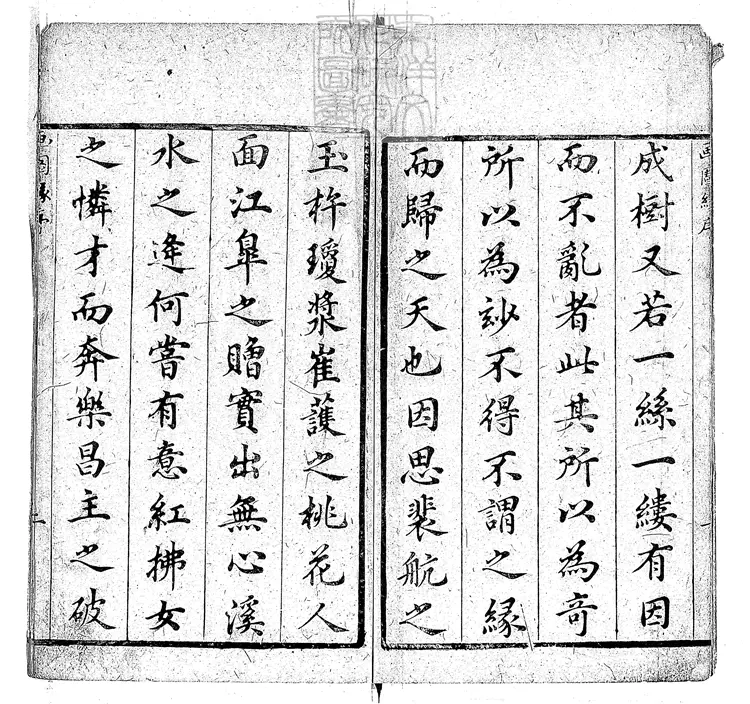 成樹又若一絲一縷有因
而不亂者此其所以為奇
所以為玅不得不謂之緣
而歸之天也因思裴航之
玉杵瓊漿崔護之桃花人
面江臯之贈實出無心溪
水之逢何嘗有意紅拂女
之憐才而奔樂昌主之破